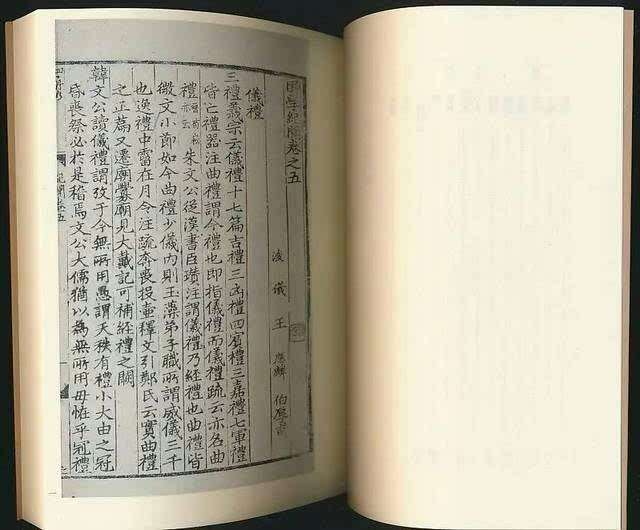 困學紀聞卷之五
浚儀王應麟伯厚甫
儀禮
三禮義宗云儀禮十七篇吉禮三凶禮四賓禮三嘉禮七軍禮
皆亡禮器注曲禮謂今禮也即指儀禮而儀禮疏云亦名曲
禮晉荀崧亦云朱文公從漢書臣瓚注謂儀禮乃經禮也曲禮皆
微文小節如今曲禮少儀內則玉藻弟子職所謂威儀三千
也逸禮中霤在月令注疏奔喪投壺釋文引鄭氏云實曲禮
之正篇又遷廟釁廟見大戴記可補經禮之闕
韓文公讀儀禮謂攷于今無所用愚謂天秩有禮小大由之冠
昏喪祭必於是稽焉文公大儒猶以為無所用毋怪乎冠禮